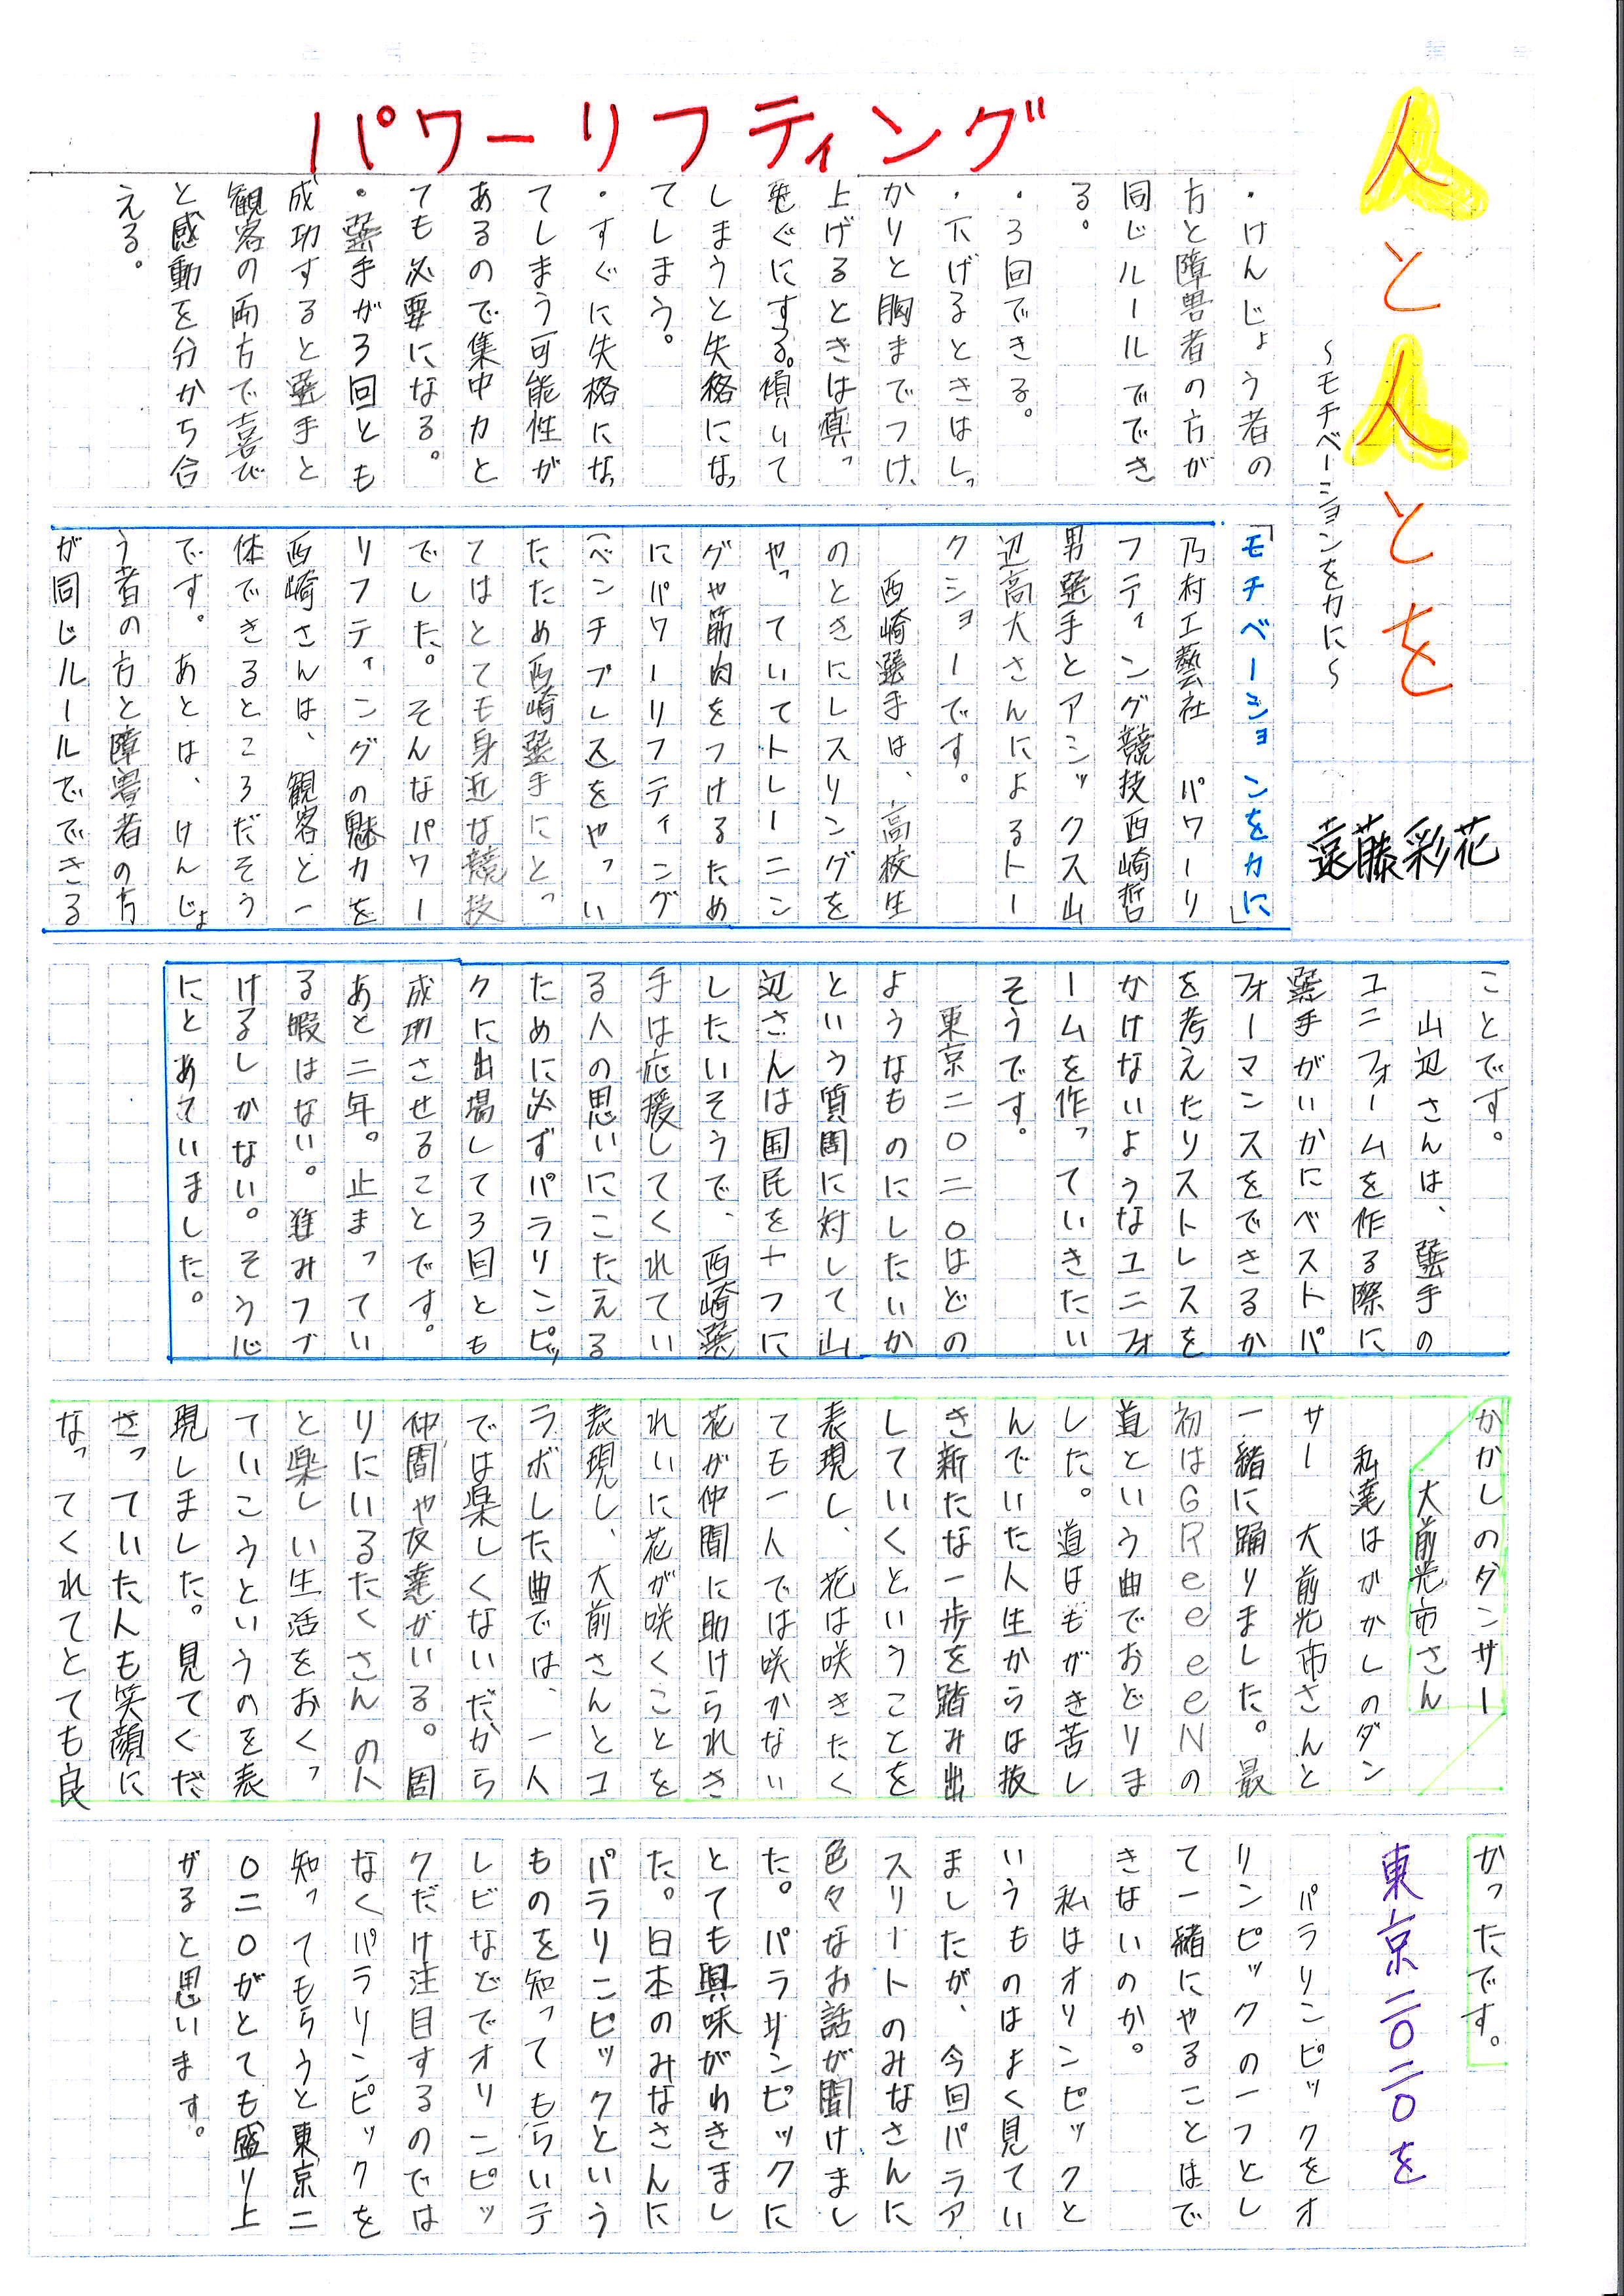 人と人とを
～モチベーションを力に～
遠藤彩花
パワーリフティング
・けんじょう者の
方と障害者の方が
同じルールででき
る。
・3回できる。
・下げるときはしっ
かりと胸までつけ、
上げるときは真っ
すぐにする。傾いて
しまうと失格になっ
てしまう。
・すぐに失格になっ
てしまう可能性が
あるので集中力と
ても必要になる。
・選手が3回とも
成功すると選手と
観客の両方で喜び
と感動を分かち合
える。
「モチベーションを力に」
乃村工藝社　パワーリ
フティング競技西崎哲
男選手とアシックス山
辺高大さんによるトー
クショーです。
西崎選手は、高校生
のときにレスリングを
やっていてトレーニン
グや筋肉をつけるため
にパワーリフティング
（ベンチプレス）をやってい
たため西崎選手にとっ
てはとても身近な競技
でした。そんなパワー
リフティングの魅力を
西崎さんは、観客と一
体できるところだそう
です。あとは、けんじょ
う者の方と障害者の方
が同じルールでできる
ことです。
山辺さんは、選手の
ユニフォームを作る際に
選手がいかにベストパ
フォーマンスをできるか
を考えたりストレスを
かけないようなユニフォ
ームを作っていきたい
そうです。
東京二〇二〇はどの
ようなものにしたいか
という質問に対して山
辺さんは国民を十つに
したいそうで、西崎選
手は応援してくれてい
る人の思いにこたえる
ために必ずパラリンピッ
クに出場して3回とも
成功させることです。
あと二年。止まってい
る暇はない。進みつづ
けるしかない。そう心
にとあていました。
かかしのダンサー
大前光市さん
私達はかかしのダン
サー　大前光市さんと
一緒に踊りました。最
初はGReeeeNの
道という曲でおどりま
した。道はもがき苦し
んでいた人生からは抜
き新たな一歩を踏み出
していくということを
表現し、花は咲きたく
ても一人では咲かない
花が仲間に助けられき
れいに花が咲くことを
表現し、大前さんとコ
ラボした曲では、一人
では楽しくないだから
仲間や友達がいる。周
りにいるたくさんの人
と楽しい生活をおくっ
ていこうというのを表
現しました。見てくだ
さっていた人も笑顔に
なってくれてとても良
かったです。
東京二〇二〇を
パラリンピックをオ
リンピックの一つとし
て一緒にやることはで
きないのか。
私はオリンピックと
いうものはよく見てい
ましたが、今回パラア
スリートのみなさんに
色々なお話が聞けまし
た。パラリンピックに
とても興味がわきまし
た。日本のみなさんに
パラリンピックという
ものを知ってもらいテ
レビなどでオリンピッ
クだけ注目するのでは
なくパラリンピックを
知ってもらうと東京二
〇二〇がとても盛り上
がると思います。